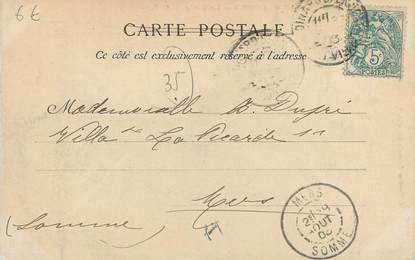 6€
CARTE POSTALE
Ce côté est exclusivement réservé à l'adresse
35
5c
POSTES
Mademoiselle B. Dupré
Villa La Picarde
Mers
(Somme)
MERS
AOUT
SOMME